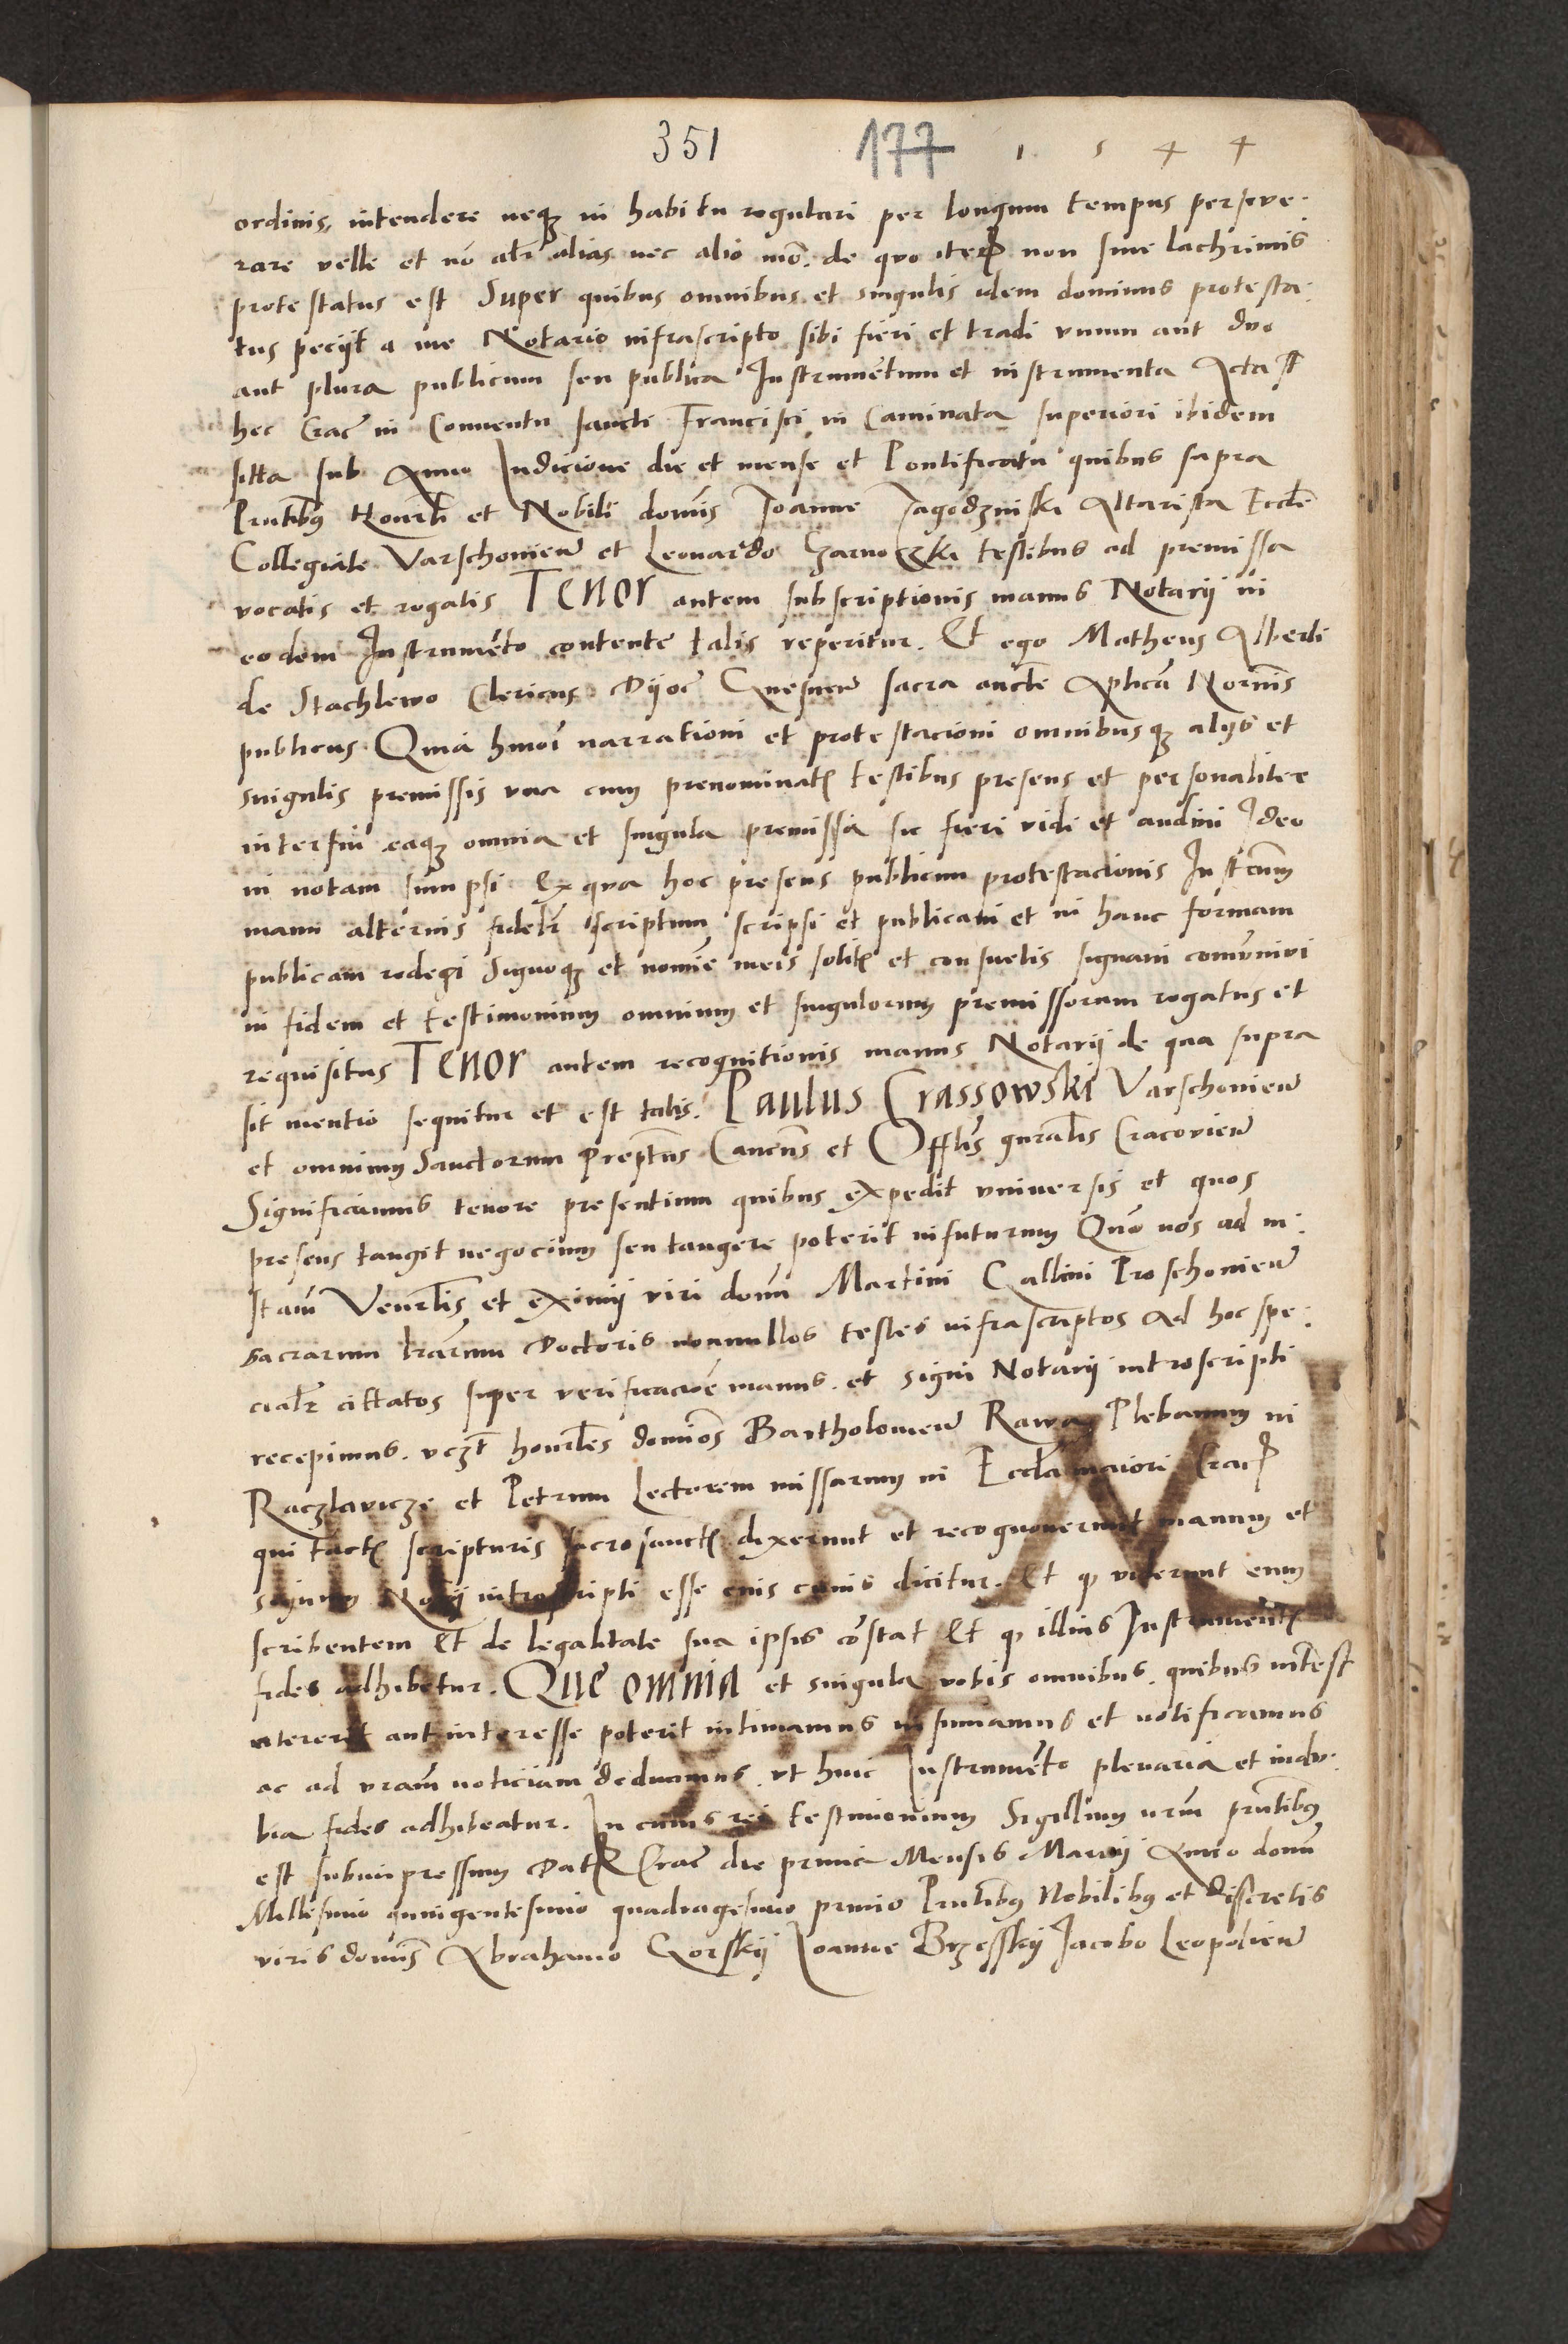 351 177 1 5 4 4
ordinis, intendere neq in habitu regulari per longum tempus perseve:
rare velle et nō alr alias nec alio mō. de quo iter non sine lachrimis
protestatus est Super quibus omnibus et singulis idem dominus protesta:
tus peciit a me Notario infrascripto sibi fieri et tradi vnum aut duo
aut plura publicum seu publica Instrumentum et instrumenta Acta st
hec Crac in Conuentu sancti Francisci in Caminata superiori ibidem
sitta sub Anno Indicione die et mense et Pontificatu quibus supra
Pntibus Honrli et Nobili domīs Joanne Jagodzinski Altarista Eccle
Collegiate Varschouien et Leonardo testibus ad premissa
vocatis et rogatis Tenor autem subscriptionis manus Notarii in
eodem Instrumēto contente talis reperitur. Et ego Matheus Alberti
de Stachlewo Clericus Dyoc Gnesnen sacra aucte Aplica Norius
publicus Quia hmoi narrationi et protestacioni omnibusq aliis et
singulis premissis vna cum prenominat testibus presens et personaliter
interfui eaq omnia et singula premissa sic fieri vidi et audiui Ideo
in notam sumpsi Ex qua hoc presens publicum protestacionis Instrum
manu alterius fidelr scriptum scripsi et publicaui et in hanc formam
publicam redegi Signoq et nomie meis solit et consuetis signaui comuniui
in fidem et testimonium omnium et singulorum premissorum rogatus et
requisitus Tenor autem recognitionis manus Notarii de qua supra
sit mentio sequitur et est talis. Paulus Crassowski Varschouien
et omnium Sanctorum Preptus Cancus et Offlis gnralis Cracouien
Significamus tenore presentium quibus expedit vniuersis et quos
presens tangit negocium seu tangere poterit infuturum Quō nos ad in:
stam Venrlis et eximii viri domi Martini Gallini Proschouien
sacrarum lrarum Doctoris nonnullos testes infrascriptos ad hoc spe:
cialr cittatos super verificacōe manus. et signi Notarii introscripti
recepimus. vczt honrles domios Bartholomeu Rawa Plebanum in
Raczlavicze et Petrum Lectorem missarum in Eccla maiori Crac
qui tact scripturis sacrosanct dixerunt et recognouerunt manum et
signum Notii introscripti esse eius cuius dicitur. Et q viderunt eum
scribentem Et de legalitate sua ipsis cōstat Et q illius Instrument
fides adhibetur. Que omnia et singula vobis omnibus. quibus interest
intererit aut interesse poterit intimamus insinuamus et notificamus
ac ad vram noticiam deducimus. vt huic Instrumēto plenaria et indu:
bia fides adhibeatur. In cuius rei testimonium Sigillum nrm pntibus
est subimpressum Dat Crac die prima Mensis Marcii Anno domi
Millesimo quingentesimo quadragesimo primo Pntibus Nobilibus et discretis
viris domīs Abrahamo Gorskij Joanne Brzesskij Jacobo Leopolien